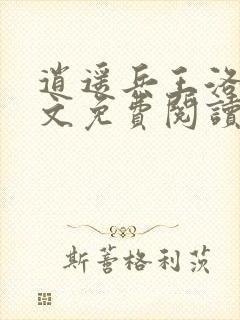 逍遥兵王洛
文免费閱讀
斯蓍格利茨